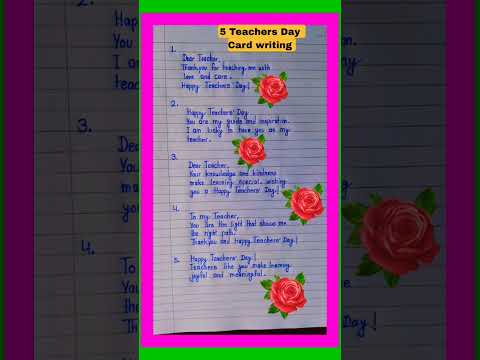 5 Teachers Day
Card writing
1.
Dear Teacher,
Thankyou for teaching me with
love and care.
Happy Teachers' Day!
2.
Happy Teachers' Day
You are my guide and inspiration.
I am lucky to have you as my
teacher.
3.
Dear Teacher,
Your knowledge and kindness
make learning special. wishing
you a Happy Teachers' Day!
4.
To my Teacher,
You are the light that shows me
the right path.
Thankyou and Happy Teachers' Day!
5.
Happy Teachers' Day!
Teachers like you make learning
joyful and meaningful.
2.
Happ
You
I am
teac
3.
Dea
You
mak
you
4.
To
You
the
Tha
my
Day!
me
Day!